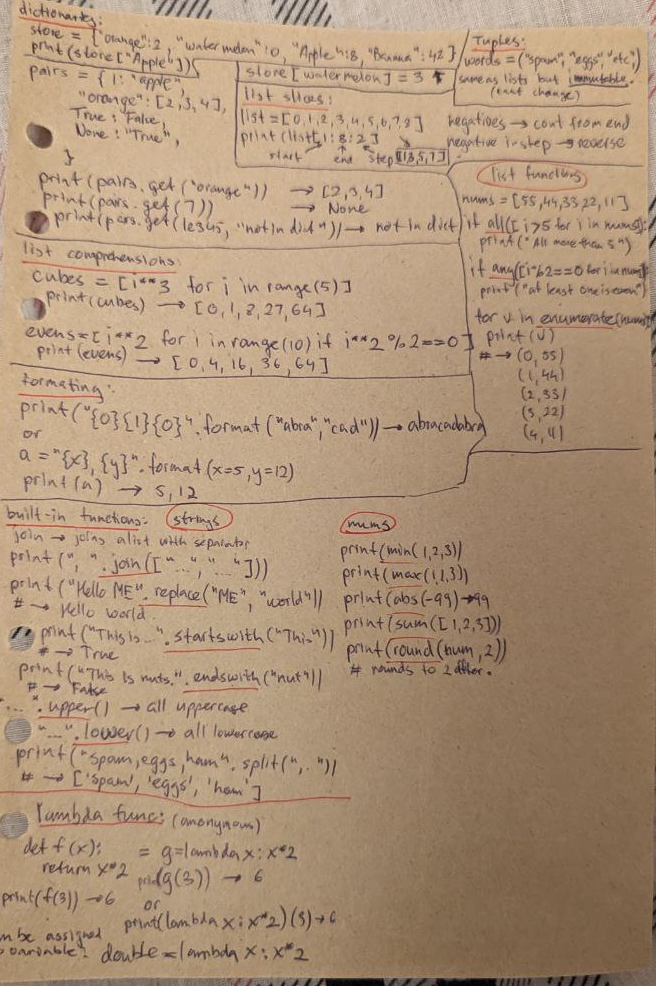 dictionaries:
store = {"orange":2, "watermelon":0, "Apple":8, "Banana":42}
print(store["Apple"])
pairs = {1: "apple",
"orange": [2,3,4],
True: "False,
None: "True",
}
print(pairs.get("orange")) → [2,3,4]
print(pairs.get(7)) → None
print(pars.get(12345, "not in dict")) → not in dict
store[watermelon] = 3
list slices:
list = [0,1,2,3,4,5,6,7,8]
print(list[1:8:2])
start end step [1,3,5,7]
Tuples:
words = ("spam", "eggs", "etc",)
same as lists but immutable.
(cant change)
negatives → count from end
negative in step → reverse
list functions
nums = [55,44,33,22,11]
if all([i>5 for i in nums]):
print("All more than 5")
if any([i%2==0 for i in nums]):
print("at least one is even")
for v in enumerate(nums):
print(v)
# → (0, 55)
(1, 44)
(2, 33)
(3, 22)
(4, 11)
list comprehensions:
cubes = [i**3 for i in range(5)]
print(cubes) → [0,1,8,27,64]
evens = [i**2 for i in range(10) if i**2 % 2==0]
print(evens) → [0,4,16,36,64]
formating:
print("{0}{1}{0}".format("abra","cad")) → abracadabra
or
a = "{x}, {y}".format(x=5,y=12)
print(a) → 5,12
built-in functions: strings
join → joins a list with separator
print(", ".join(["...", "..."]))
print("Hello ME".replace("ME", "world"))
# → Hello world
print("This is...".startswith("This"))
# → True
print("This is nuts.".endswith("nut"))
# → False
"...".upper() → all uppercase
"...".lower() → all lowercase
print("spam,eggs,ham".split(", "))
# → ['spam', 'eggs', 'ham']
nums
print(min(1,2,3))
print(max(1,2,3))
print(abs(-99)) → 99
print(sum([1,2,3]))
print(round(num,2))
# rounds to 2 after.
lambda func: (anonymous)
def f(x): = g=lambda x: x*2
return x*2 print(g(3)) → 6
print(f(3)) → 6 or
print(lambda x: x*2)(3) → 6
be assigned
variable: double = lambda x: x*2